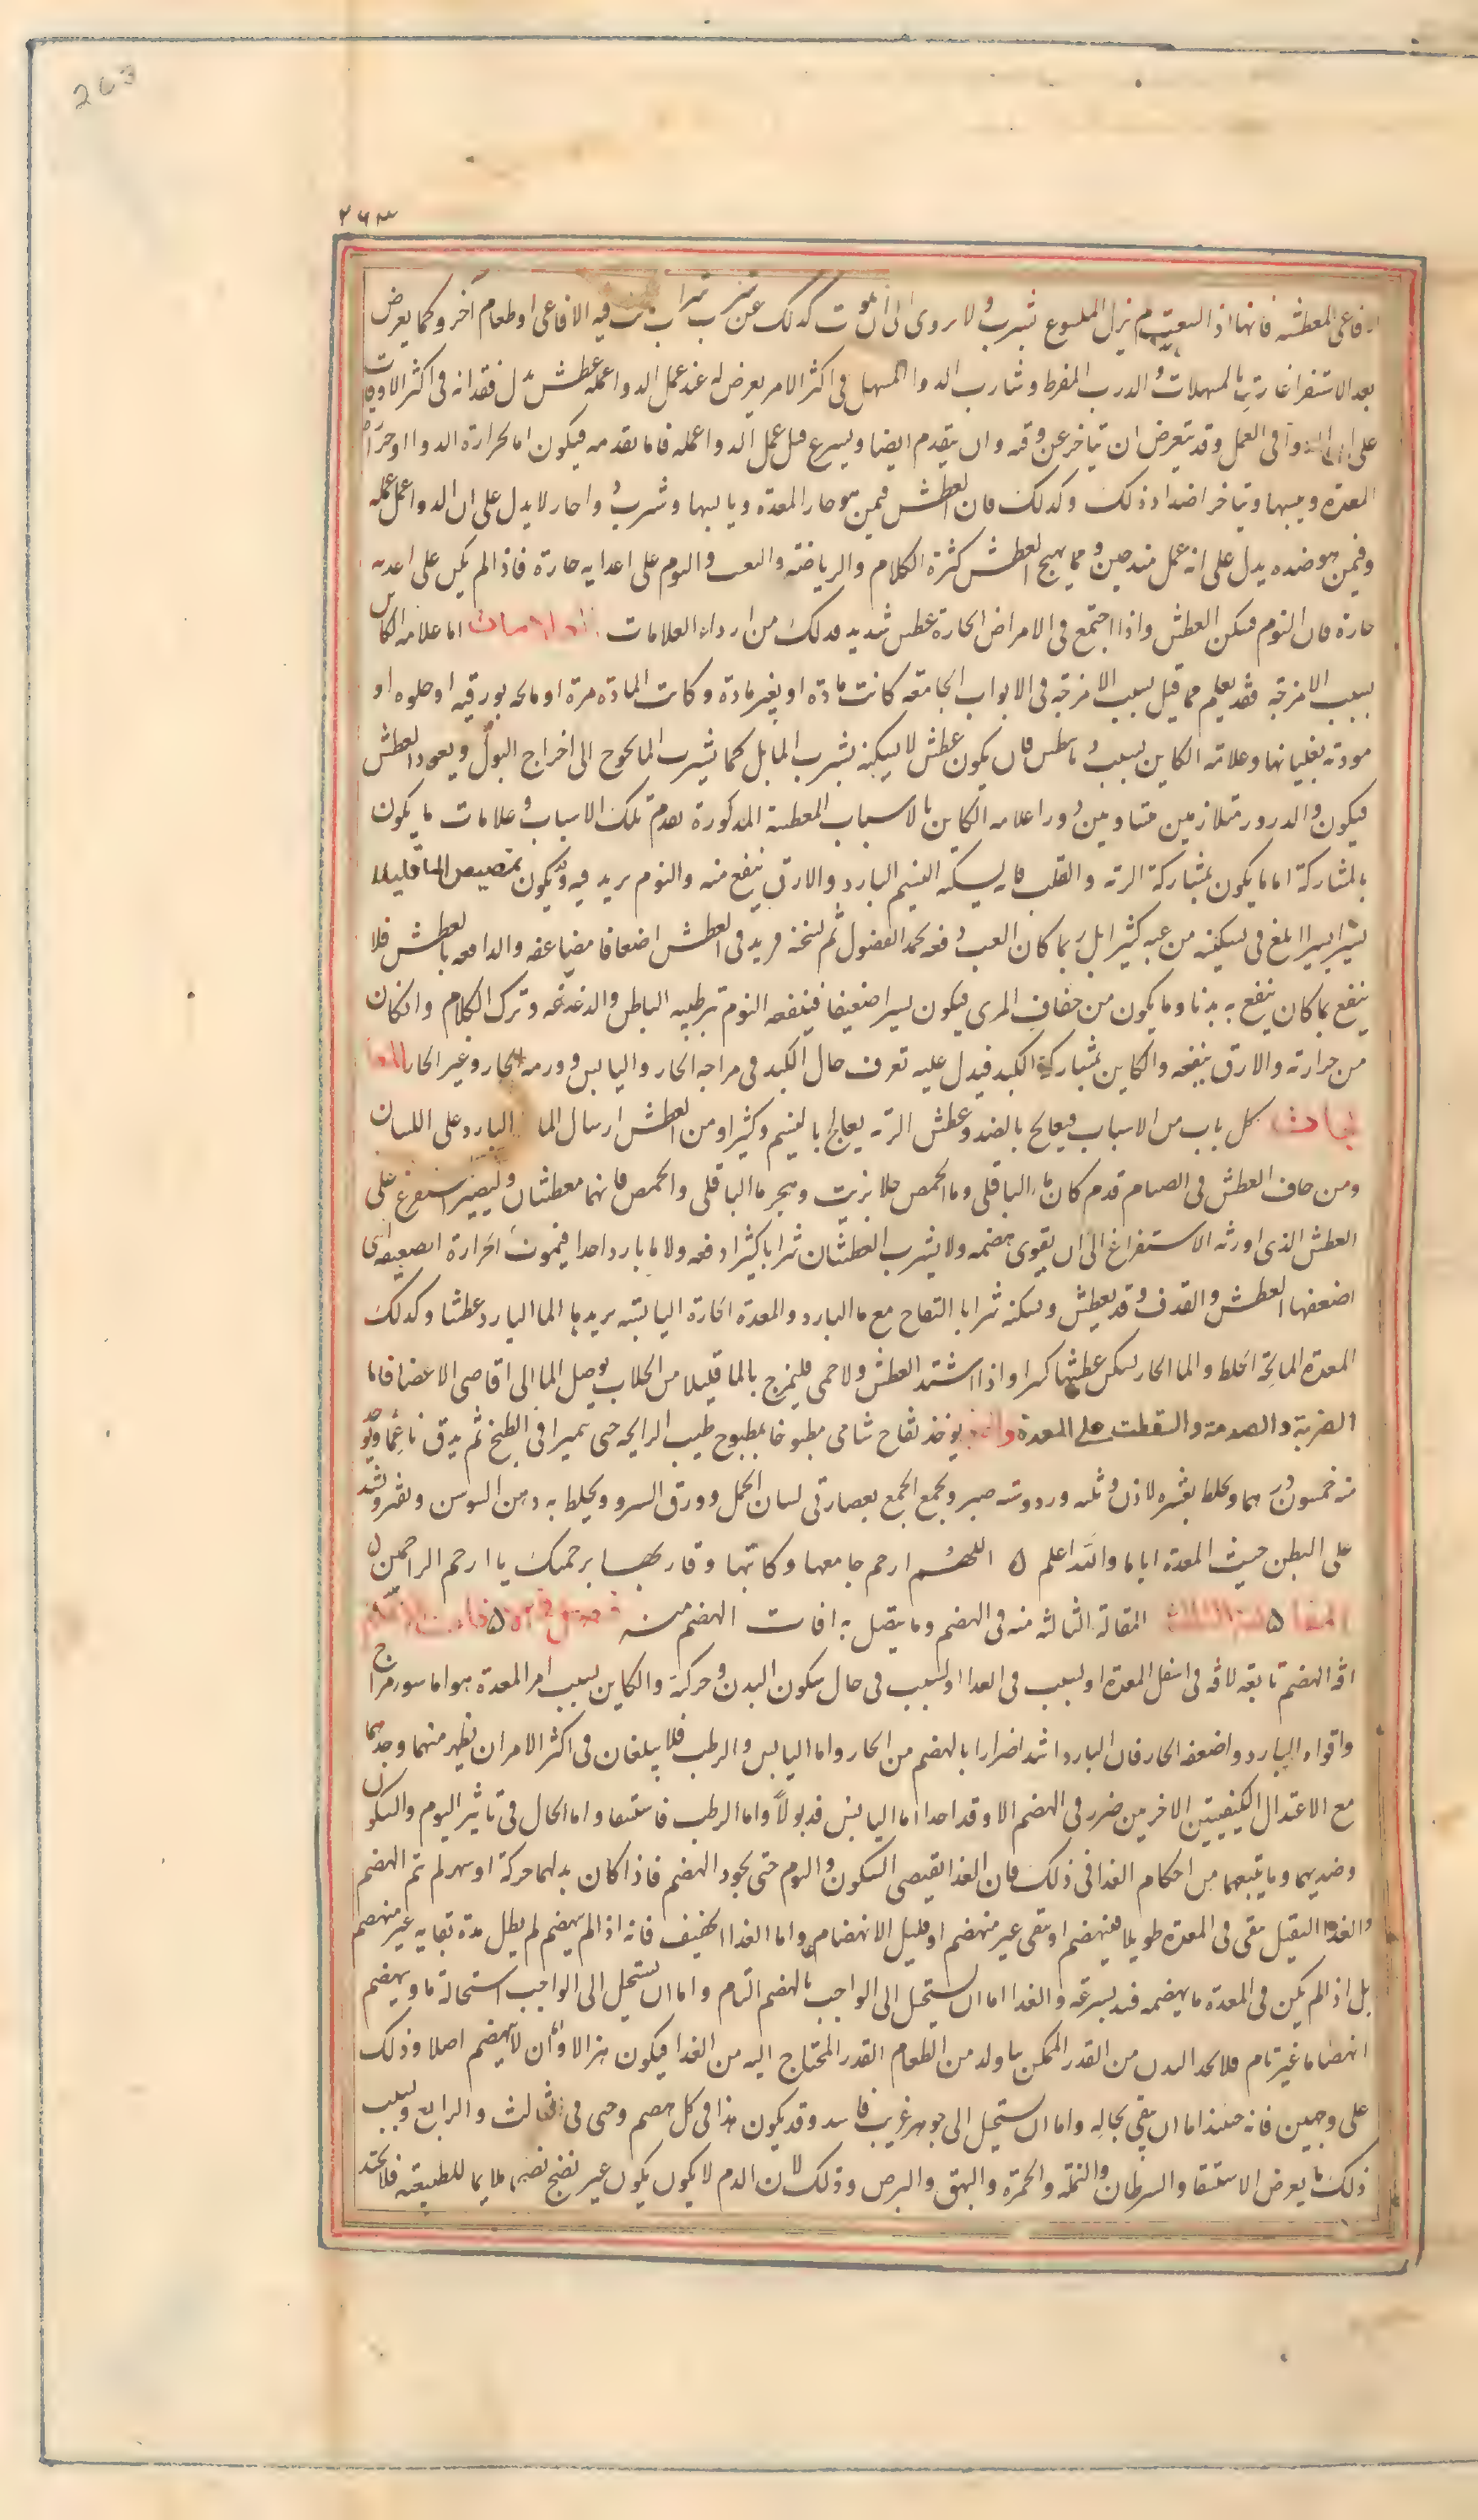 263
٢٦٣
الافاعي المعطشة فانها اذا لسعت لم يزل الملسوع يشرب ولا يروى الى ان يموت كذلك عن شرب شراب ماتت فيه الافاعي او طعام آخر وكما يعرض
بعد الاستفراغات بالمسهلات والذرب المفرط وشارب الدوا المسهل في اكثر الامر يعرض له عند عمل الدوا عمله عطش يدل فقدانه في اكثر الاوقات
على ان الدوا في العمل وقد يتعرض ان يتاخر عن وقته وان يتقدم ايضا ويسرع قبل عمل الدوا عمله فاما تقدمه فيكون اما لحرارة الدوا او حرارة
المعدة ويبسها ويتاخر اضداد ذلك وكذلك فان العطش فيمن هو حار المعدة ويابسها وشرب دوا حار لا يدل على ان الدوا عمل عمله
وفيمن هو ضده يدل على انه عمل منذ حين ومما يهيج العطش كثرة الكلام والرياضة والتعب والنوم على اغذية حارة فاذا لم يكن على اغذية
حارة فان النوم مسكن العطش واذا اجتمع في الامراض الحارة عطش شديد فذلك من اردا العلامات العلامات اما علامة الكاين
بسبب الامزجة فقد يعلم مما قيل بسبب الامزجة في الابواب الجامعة كانت مادة او بغير مادة وكانت المادة مرة او مالحة بورقية او حلوة او
موذية بغليانها وعلامة الكاين بسبب ديابيطس فان يكون عطش لا يسكنه بشرب الما بل كما يشرب الما يحوج الى اخراج البول ويعود العطش
فيكون والدرور متلازمين متساويين دورا علامة الكاين بالاسباب المعطشة المذكورة تقدم تلك الاسباب وعلامات ما يكون
بالمشاركة اما ما يكون بمشاركة الرئة والقلب فانه يسكنه النسيم البارد والارق ينفع منه والنوم يزيد فيه وقد يكون تمصيص الما قليلا
يسيرا يسيرا ابلغ في تسكينه من عبه كثيرا بل ربما كان العب دفعة يجمد الفضول ثم يسخنه فيزيد في العطش اضعافا مضاعفة والدافعة بالعطش فلا
ينفع بما كان ينفع به بدنا وما يكون من جفاف المري فيكون يسيرا ضعيفا فينفعه النوم بترطيبه الباطن والدغدغة وترك الكلام وان كان
من حرارته والارق ينفعه والكاين بمشاركة الكبد فيدل عليه تعرف حال الكبد في مزاجه الحار واليابس وورمه الحار وغير الحار المعا
لجات كل باب من الاسباب فيعالج بالضد وعطش الرئة يعالج بالنسيم وكثيرا ومن العطش ارسال الما البارد على اللسان
ومن خاف العطش في الصيام قدم مكان ماء الباقلى وما الحمص خلا بزيت وهجر ما الباقلى والحمص فانهما معطشان وليصبر استفرغ على
العطش الذي اورثه الاستفراغ الى ان يقوى هضمه ولا يشرب العطشان شرابا كثيرا دفعة ولا ما باردا جدا فيموت الحرارة الضعيفة التي
اضعفها العطش والقذف وقد يعطش ويسكنه شراب التفاح مع ما البارد والمعدة الحارة اليابسة يزيدها الما البارد عطشا وكذلك
المعدة المالحة الخلط والما الحار يسكن عطشها كثيرا واذا اشتد العطش ولا حمى فليمزج بالما قليلا من الجلاب يوصل الما الى اقاصي الاعضا فاما
الضربة والصدمة والسقطت على المعدة والضد يوخذ تفاح شامي مطبوخا بمطبوح طيب الرايحة حتى يتهرا في الطبخ ثم يدق ناعما ويوخذ
منه خمسون درهما ويخلط بعشرة لاذن وثلثه ورد وستة صبر ويجمع الجميع بعصارتي لسان الحمل وورق السرو ويخلط به دهن السوسن ويفتر ويشد
على البطن حيث المعدة اياما والله اعلم ٥ اللهم ارحم جامعها وكاتبها وقاريها برحمتك يا ارحم الراحمين ٥
المقالة الثالثة المقالة الثالثة منه في الهضم وما يتصل به افات الهضم منه فصل في افات الهضم
افة الهضم تابعة لافة في اسفل المعدة او لسبب في الغذا او لسبب في حال سكون البدن وحركته والكاين بسبب امر المعدة هو اما سو مزاج
واقواه البارد واضعفه الحار فان البارد اشد اضرارا بالهضم من الحار واما اليابس والرطب فلا يبلغان في اكثر الامر ان يظهر منهما وحدهما
مع الاعتدال الكيفيتين الاخرين ضرر في الهضم الا وقد احدثا اما اليابس فذبولا واما الرطب فاستسقا واما الحال في تاثير النوم والسكون
وضديهما وما يتبعهما من احكام الغذا في ذلك فان الغذا يقتضي السكون والنوم حتى يجود الهضم فاذا كان بدلهما حركة او سهر لم يتم الهضم
والغذا الثقيل يبقى في المعدة طويلا فينهضم او يبقى غير منهضم او قليل الانهضام واما الغذا الخفيف فانه اذا لم ينهضم لم يطل مدة بقايه غير منهضم
بل اذا لم يكن في المعدة ما يهضمه فسد بسرعة والغذا اما ان يستحيل الى الواجب بالهضم التام واما ان يستحيل الى الواجب استحالة ما وينهضم
انهضاما غير تام فلا يجد البدن من القدر الممكن تناوله من الطعام القدر المحتاج اليه من الغذا فيكون هزالا واما ان لا ينهضم اصلا وذلك
على وجهين فانه حينئذ اما ان يبقى بحاله واما ان يستحيل الى جوهر غريب فاسد وقد يكون هذا في كل هضم وحتى في الثالث والرابع وبسبب
ذلك ما يعرض الاستسقا والسرطان والنملة والحمرة والبهق والبرص وذلك لان الدم لا يكون يكون غير نضج نضجا ملايما للطبيعة فلا يجتذ